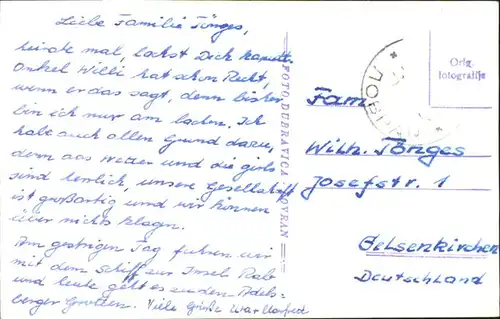 Liebe Familie Tönges,
mal, lachst Dich kaputt.
Onkel Willi hat schon Recht,
wenn er das sagt, denn bisher
bin ich nur am lachen. Ich
habe auch allen Grund dazu,
denn das Wetter und die girls
sind herrlich, unsere Gesellschaft
ist großartig und wir können
über nichts klagen.
Am gestrigen Tag fuhren wir
mit dem Schiff zur Insel Rab
und heute geht es zu den Adels-
berger Grotten. Viele Grüße
FOTO DUBRAVICA
Orig.
fotografije
Fam
Wilh. Tönges
Josefstr. 1
Gelsenkirchen
Deutschland